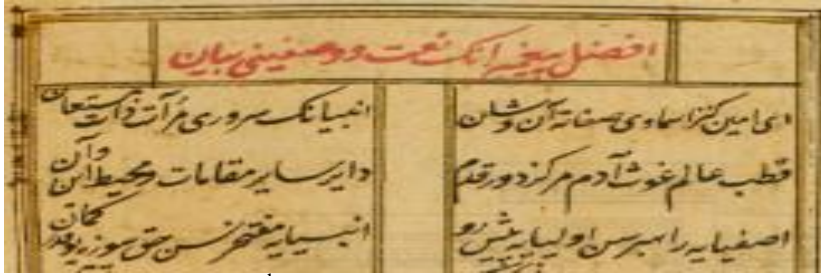 افضل پیغمبرانک نعت و وصفینی بیان
ای امین کنز اسماوی صفاته آن و شان
انبیانک سروری مرآت ذات مستعان
قطب عالم غوث آدم مرکز دور قدم
دایر سایر مقامات و محیط این و آن
اصفیایه راهبرسن اولیایه پیش رو
انبیایه مفتخرسن حق سوزیدر